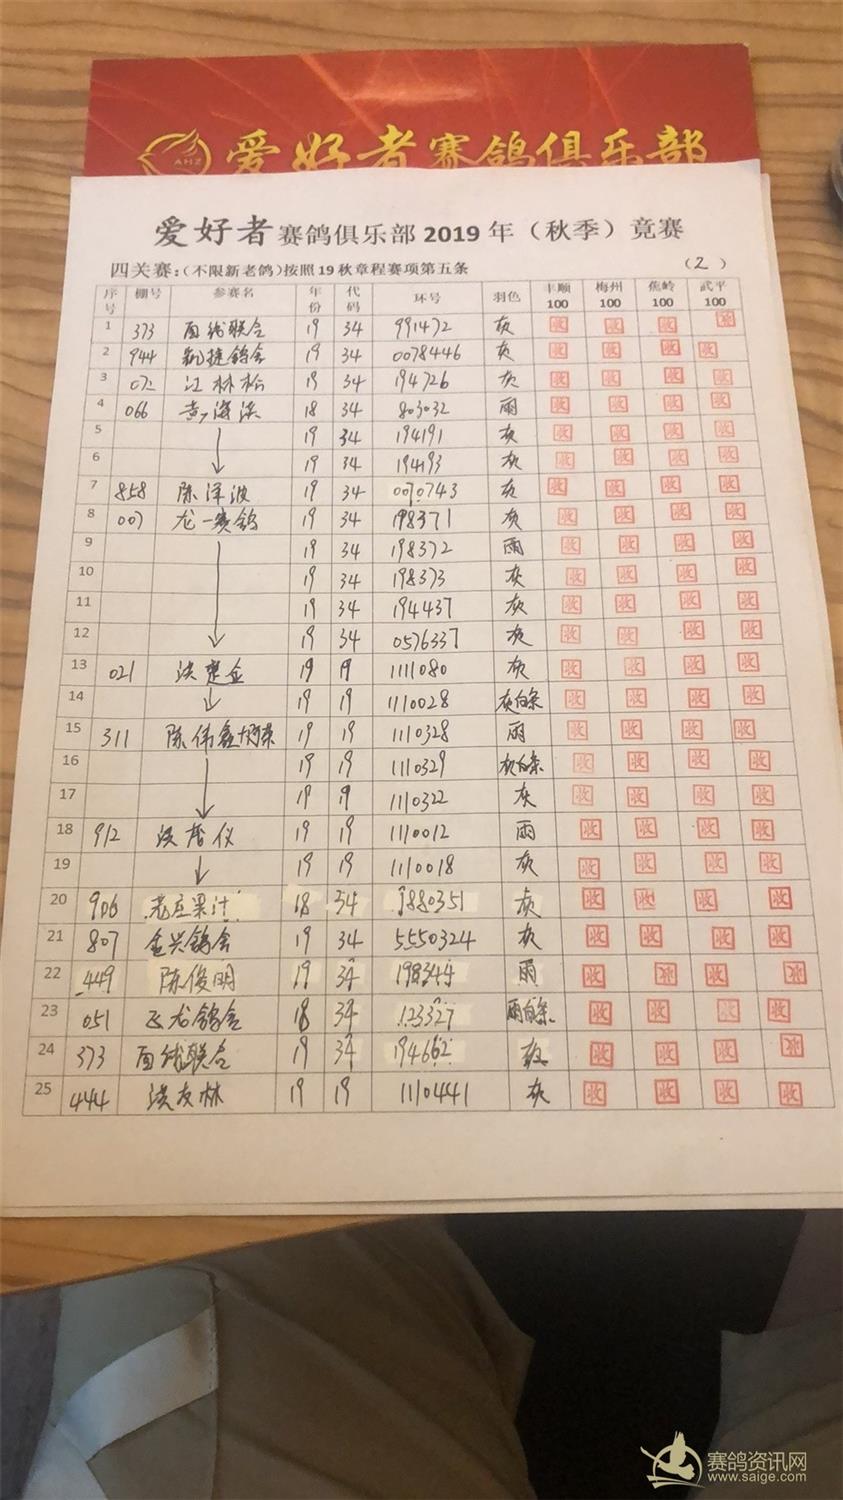 AHZ 爱好者赛鸽俱乐部
爱好者赛鸽俱乐部2019年（秋季）竟赛
四关赛:（不限新老鸽）按照19秋章程赛项第五条 （2）
序号 棚号 参赛名 年份 代码 环号 羽色 丰顺100 梅州100 蕉岭100 武平100
1 373 面线联合 19 34 991472 灰 收 收 收 收
2 944 凯捷鸽舍 19 34 0078446 灰 收 收 收 收
3 072 江林松 19 34 194726 灰 收 收 收 收
4 066 黄海滨 18 34 803032 雨 收 收 收 收
5 19 34 194191 灰 收 收 收 收
6 19 34 194193 灰 收 收 收 收
7 858 陈泽波 19 34 0070743 灰 收 收 收 收
8 007 龙一赛鸽 19 34 198371 灰 收 收 收 收
9 19 34 198372 雨 收 收 收 收
10 19 34 198373 灰 收 收 收 收
11 19 34 194437 灰 收 收 收 收
12 19 34 0576337 灰 收 收 收 收
13 021 洪楚金 19 19 1111080 灰 收 收 收 收
14 19 19 1110028 灰白条 收 收 收 收
15 311 陈伟鑫 19 19 1110328 雨 收 收 收 收
16 19 19 1110329 灰白条 收 收 收 收
17 19 19 1110322 灰 收 收 收 收
18 912 洪 仪 19 19 1110012 雨 收 收 收 收
19 19 19 1110018 灰 收 收 收 收
20 906 老庄果汁 18 34 1880351 灰 收 收 收 收
21 807 金兴鸽舍 19 34 5550324 灰 收 收 收 收
22 449 陈俊明 19 34 198344 雨 收 收 收 收
23 051 飞龙鸽舍 18 34 123327 雨白条 收 收 收 收
24 373 面线联合 19 34 194662 灰 收 收 收 收
25 444 洪友林 19 19 1110441 灰 收 收 收 收
赛鸽资讯网
www.saige.com